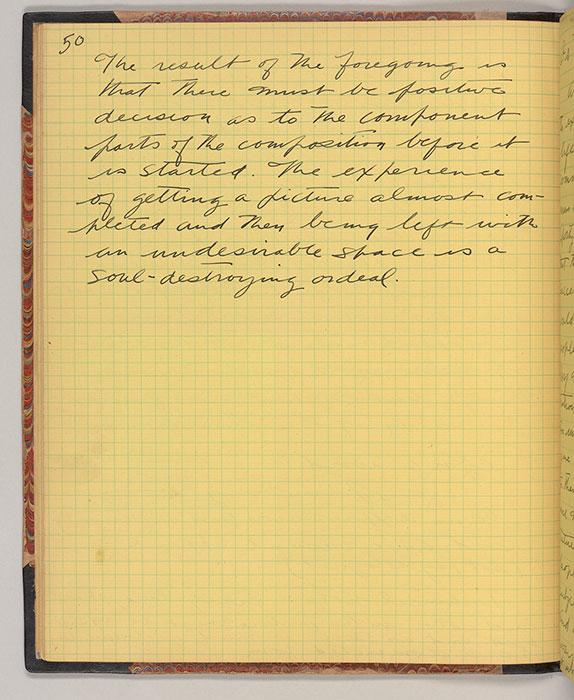 50
The result of the foregoing is
that there must be positive
decision as to the component
parts of the composition before it
is started. The experience
of getting a picture almost com-
pleted and then being left with
an undesirable space is a
soul-destroying ordeal.